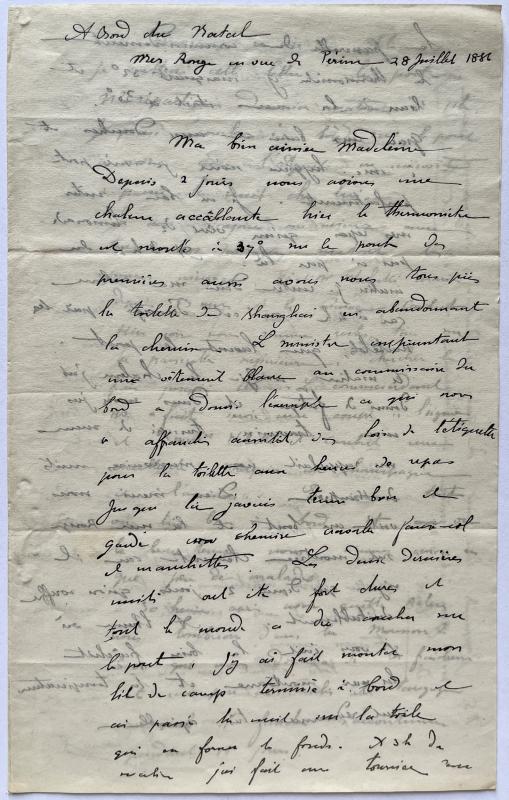 A Bord du Natal
Mer Rouge en vue de Perim 28 Juillet 1886
Ma bien aimée Madeleine
Depuis 2 jours nous avons une
chaleur accablante hier le thermomètre
est monté à 37° sur le pont des
premières aussi avons nous tous pris
la toilette de Shanghai en abandonnant
la chemise. Le ministre empruntant
une vêtement blanc au commissaire du
bord a donné l'exemple ce qui nous
a affranchi aussitôt des lois de l'etiquette
pour la toilette aux heures de repas
Jusque là j'avais tenu bon et
gardé ma chemise cravate faux-col
et manchettes. Les deux dernières
nuits ont été fort dures et
tout le monde a dû coucher sur
le pont, j'y ai fait monter mon
lit de camp terminé à bord et
ai passé la nuit sur la toile
qui en forme le fond. A 3h du
matin j'ai fait une tournée sur